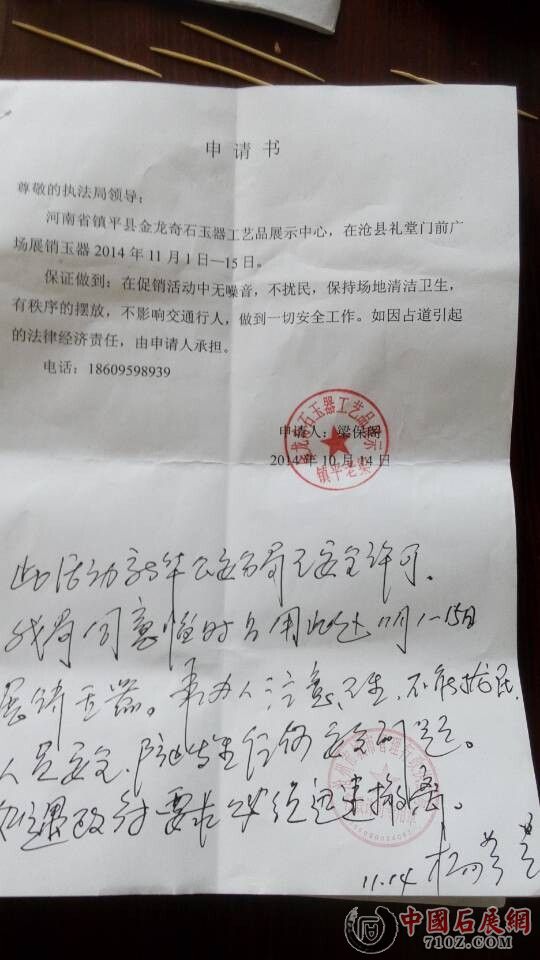 申 请 书
尊敬的执法局领导：
河南省镇平县金龙奇石玉器工艺品展示中心，在沧县礼堂门前广
场展销玉器 2014 年 11 月 1 日—15 日。
保证做到：在促销活动中无噪音，不扰民，保持场地清洁卫生，
有秩序的摆放，不影响交通行人，做到一切安全工作。如因占道引起
的法律经济责任，由申请人承担。
电话：18609598939
龙奇石玉器工艺品展示
镇平
申请人：梁保阁
2014 年 10 月 14 日
此活动 公安分局 安全许可，
我局同意临时占用此处 11月1-15日
展销玉器。承办人注意卫生，不能扰民，
人员安全，防止发生任何安全问题。
如遇政府要求必须迅速撤离。
11.14
中國石展網
710Z.COM